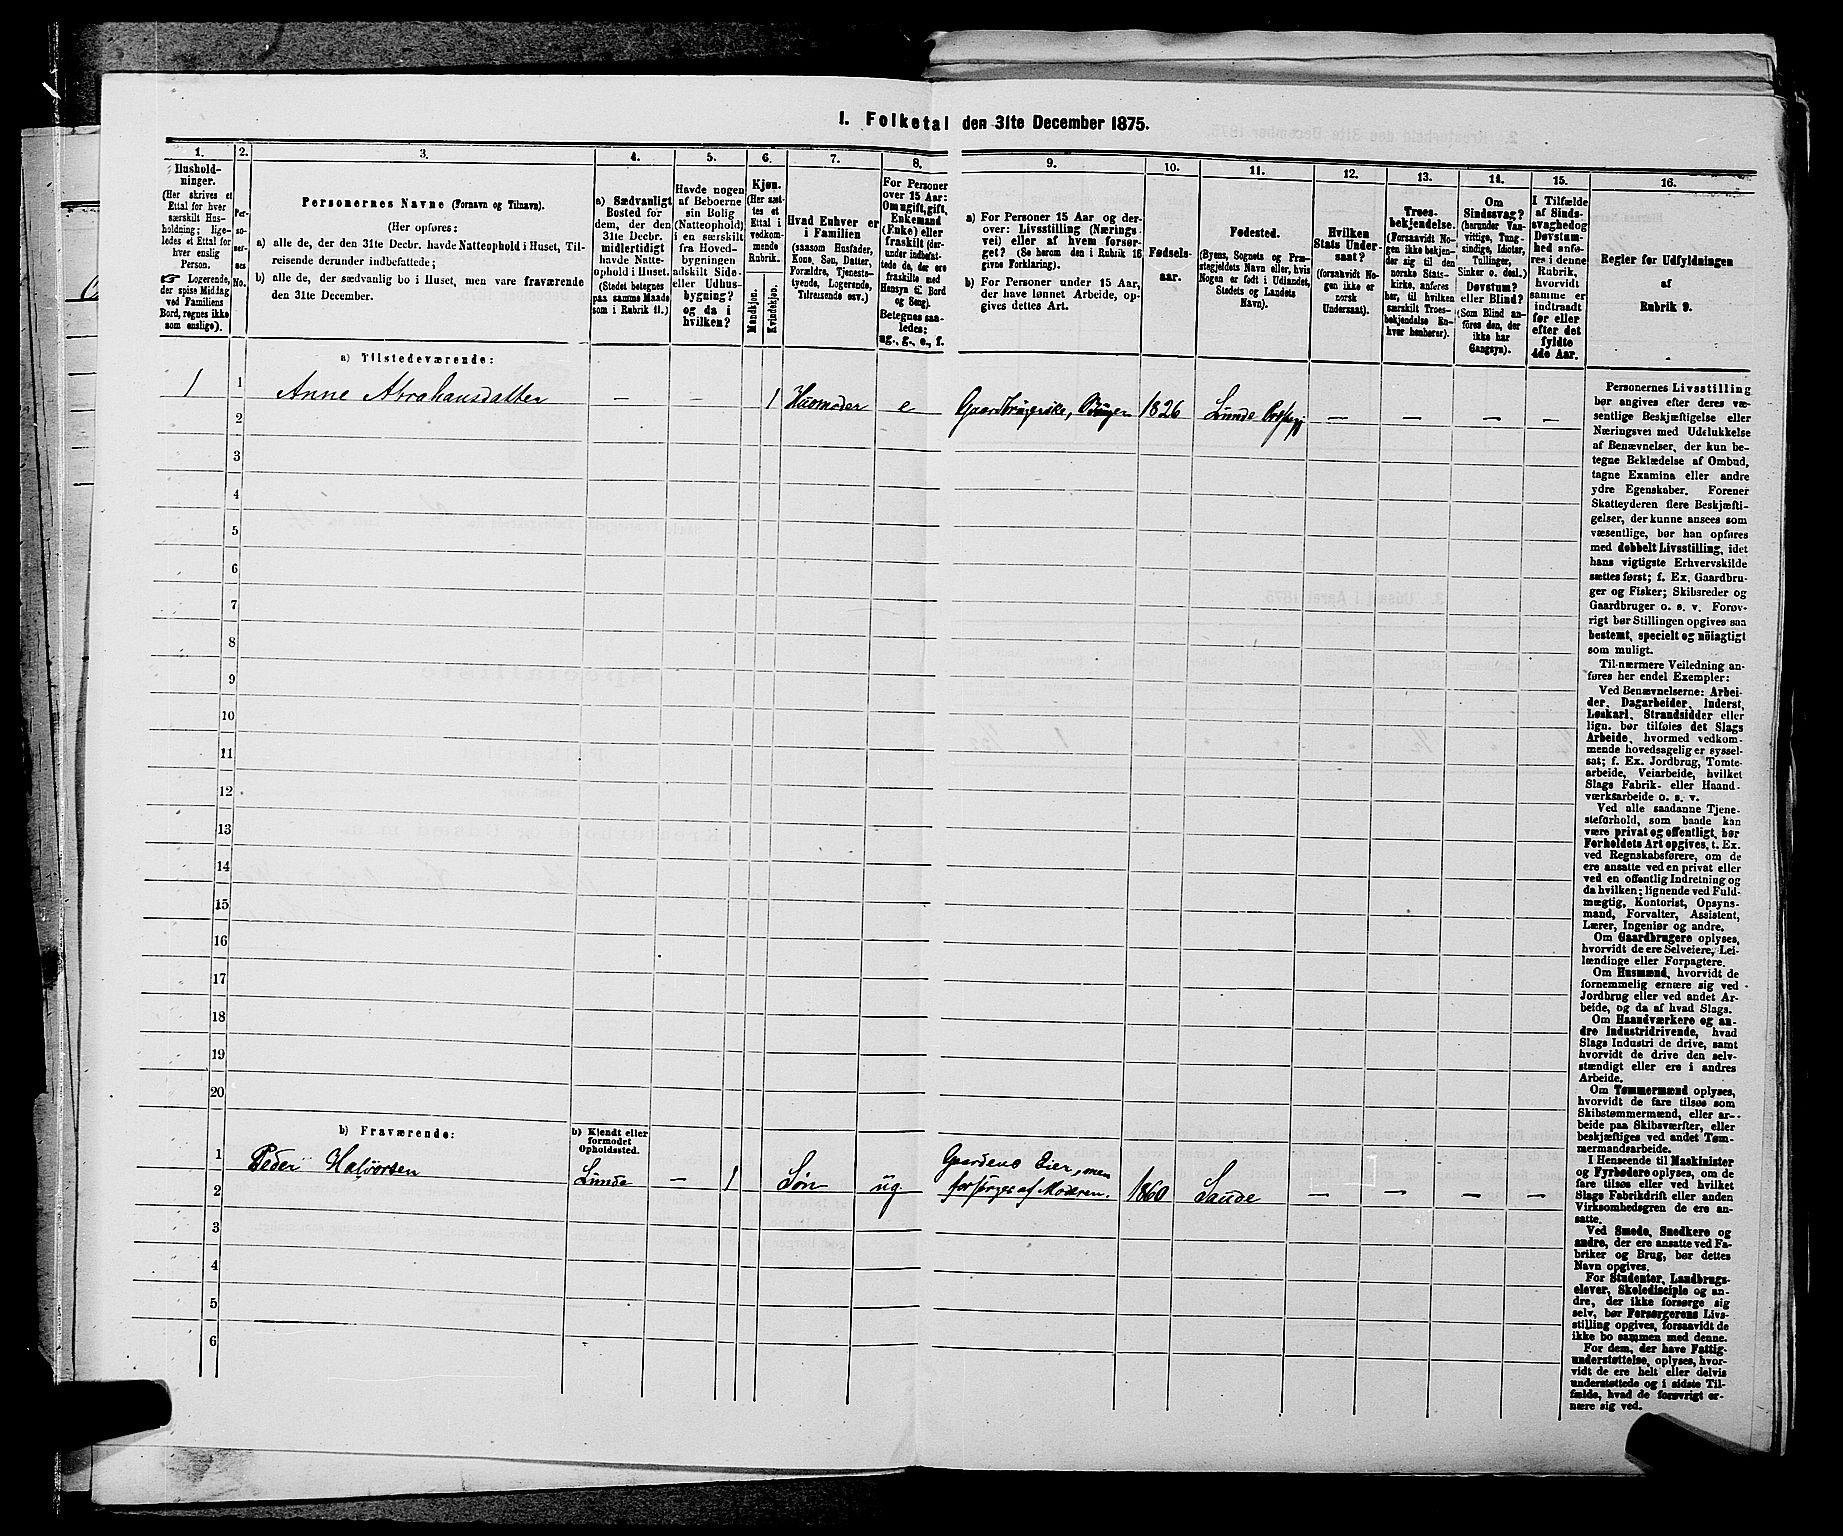 1. Folketal den 31te December 1875.
1. 2. 3. 4. 5. 6. 7. 8. 9. 10. 11. 12. 13. 14. 15. 16.
Hushold-
ninger.
(Her skrives et
Ettal for hver
særskilt Hus-
holdning; lige-
ledes et Ettal for
hver enslig
Person.
Logerende,
der spise Middag
ved Familiens
Bord, regnes ikke
som enslige).
Per-
so-
ner-
nes
No.
Personernes Navne (Fornavn og Tilnavn).
(Her opføres:
a) alle de, der den 31te Decbr. havde Natteophold i Huset, Til-
reisende derunder indbefattede;
b) alle de, der sædvanlig bo i Huset, men vare fraværende
den 31te December.
a) Sædvanligt
Bosted for
dem, der den
31te Decbr.
midlertidigt
havde Natte-
ophold i Huset.
(Stedet betegnes
paa samme Maade
som i Rubrik 11.)
Havde nogen
af Beboerne
sin Bolig
(Natteophold)
i en særskilt
fra Hoved-
bygningen
adskilt Side-
eller Udhus-
bygning?
og da i
hvilken?
Kjøn.
(Her sæt-
tes et
Ettal i
vedkom-
mende
Rubrik.
Mandkjøn.
Kvindekjøn.
Hvad Enhver er
i Familien
(saasom Husfader,
Kone, Søn, Datter,
Forældre, Tjeneste-
tyende, Logerende,
Tilreisende osv.)
For Personer
over 15 Aar:
Om ugift, gift,
Enkemand
(Enke) eller
fraskilt (der-
under indbefat-
tede de, der ere
fraskilte med
Hensyn til Bord
og Seng).
Betegnes saa-
ledes:
ug., g., e., f.
a) For Personer 15 Aar og der-
over: Livsstilling (Nærings-
vei) eller af hvem forsør-
get? (Se herom den i Rubrik 16
givne Forklaring).
b) For Personer under 15 Aar,
der have lønnet Arbeide, op-
gives dettes Art.
Fødsels-
aar.
Fødested.
(Byens, Sognets og Præ-
stegjeldets Navn eller, hvis
Nogen er født i Udlandet,
Stedets og Landets
Navn).
Hvilken
Stats Under-
saat?
(forsaavidt No-
gen ikke er
norsk
Undersaat).
Troes-
bekjendelse.
(Forsaavidt No-
gen ikke bekjen-
der sig til den
norske Stats-
kirke, anføres
her, til hvilken
særskilt Troes-
bekjendelse En-
hver henhører).
Om
Sindssvag?
(herunder Van-
vittige, Tung-
sindige, Idioter,
Tullinger,
Sinker o. desl.)
Døvstum?
eller Blind?
(Som Blind an-
føres den, der
ikke har
Gangsyn).
I Tilfælde
af Sinds-
svaghed og
Døvstum-
hed anfø-
res i denne
Rubrik,
hvorvidt
samme er
indtraadt
før eller
efter det
fyldte
4de Aar.
Regler for Udfyldningen
af
Rubrik 9.
a) Tilstedeværende:
1 1 Anne Abrahamsdatter — — 1 Husmoder e Gaardbrugerske, 1826 Lunde — — — —
2
3
4
5
6
7
8
9
10
11
12
13
14
15
16
17
18
19
20
b) Fraværende:
b) Kjendt eller
formodet
Opholdssted.
1 Peder Halvorsen Lunde — 1 Søn ug Gaardens Eier, men
forsørges af Moderen. 1860 Saude — — — —
2
3
4
5
6
Personernes Livsstilling
bør angives efter deres væ-
sentlige Beskjæftigelse eller
Næringsvei med Udelukkelse
af Benævnelser, der kun be-
tegne Beklædelse af Ombud,
tagne Examina eller andre
ydre Egenskaber. Forener
Skatteyderen flere Beskjæfti-
gelser, der kunne ansees som
væsentlige, bør han opføres
med dobbelt Livsstilling, idet
hans vigtigste Erhvervskilde
sættes først; f. Ex. Gaardbru-
ger og Fisker; Skibsreder og
Gaardbruger o. s. v. Forøv-
rigt bør Stillingen opgives saa
bestemt, specielt og nöiagtigt
som muligt.
Til nærmere Veiledning an-
føres her endel Exempler:
Ved Benævnelserne: Arbei-
der, Dagarbeider, Inderst,
Løskarl, Strandsidder eller
lign. bør tilføies det Slags
Arbeide, hvormed vedkom-
mende hovedsagelig er syssel-
sat; f. Ex. Jordbrug, Tomte-
arbeide, Veiarbeide, hvilket
Slags Fabrik- eller Haand-
værksarbeide o. s. v.
Ved alle saadanne Tjene-
steforhold, som baade kan
være privat og offentligt, bør
Forholdets Art opgives, t. Ex.
ved Regnskabsførere, om de
ere ansatte ved en privat eller
ved en offentlig Indretning og
da hvilken; lignende ved Fuld-
mægtig, Kontorist, Opsyns-
mand, Forvalter, Assistent,
Lærer, Ingeniør og andre.
Om Gaardbrugere oplyses,
hvorvidt de ere Selveiere, Lei-
lændinge eller Forpagtere.
Om Husmænd, hvorvidt de
fornemmelig ernære sig ved
Jordbrug eller ved andet Ar-
beide, og da af hvad Slags.
Om Haandværkere og an-
dre Industridrivende, hvad
Slags Industri de drive, samt
hvorvidt de drive den selv-
stændigt eller ere i andres
Arbeide.
Om Tømmermænd oplyses,
hvorvidt de fare tilsøs som
Skibstømmermænd, eller ar-
beide paa Skibsværfter, eller
beskjæftiges ved andet Tøm-
mermandsarbeide.
I Henseende til Maskinister
og Fyrbødere oplyses, om de
fare tilsøs eller ved hvilket
Slags Fabrikdrift eller anden
Virksomhedsgren de ere an-
satte.
Ved Smede, Snedkere og
andre, der ere ansatte ved Fa-
briker og Brug, bør dettes
Navn opgives.
For Studenter, Landbrugs-
elever, Skoledisciple og an-
dre, der ikke forsørge sig
selv, bør Forsørgerens Livs-
stilling opgives, forsaavidt de
ikke bo sammen med denne.
For dem, der have Fattig-
understøttelse, oplyses, hvor-
vidt de ere helt eller delvis
understøttede og i sidste Til-
fælde, hvad de forøvrigt er-
nære sig ved.